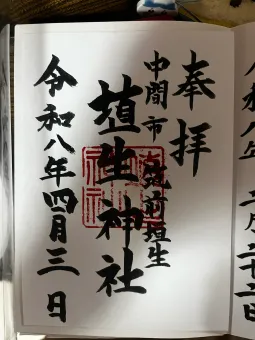 奉拝
中間市
筑前垣生
埴生神社
令和八年四月三日